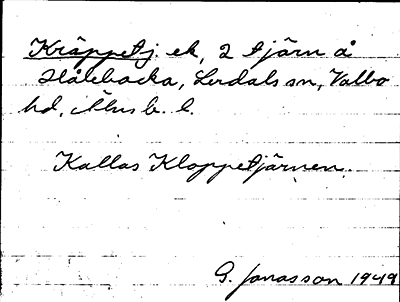 Kräppetj. ek, 2 tjärn å
Hålebacka, Lerdals sn, Valbo
hd, Älvsb. l.
Kallas Kloppetjärnen.
G. Jonasson 1949